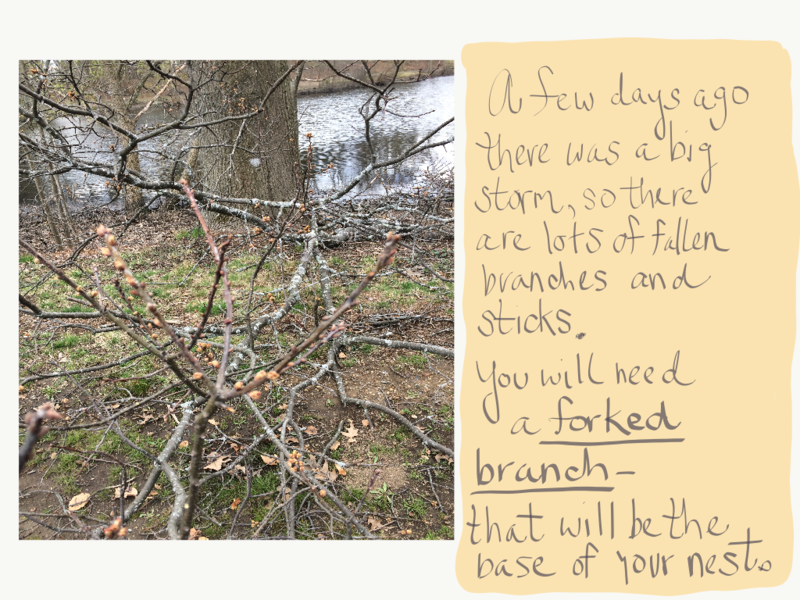 A few days ago
there was a big
storm, so there
are lots of fallen
branches and
sticks.
You will need
a forked
branch–
that will be the
base of your nest.